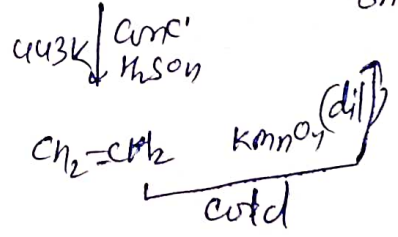 443K Conc'
H₂SO₄
CH₂=CH₂ KMnO₄ (dil)
cold